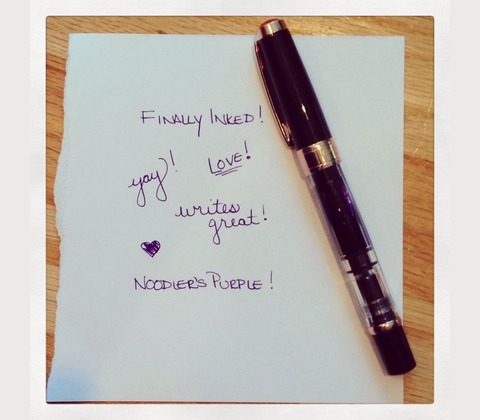 FINALLY INKED!
yay! LOVE!
writes
great!
NOODLER'S PURPLE!